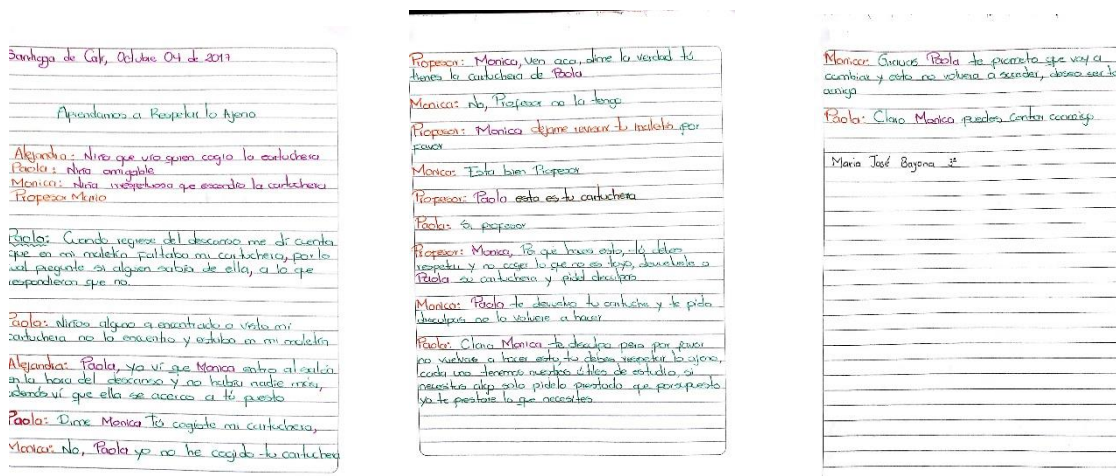 Santiago de Cali, Octubre 04 de 2017
Aprendamos a Respetar lo Ajeno
Alejandra: Niña que vio quien cogio la cartuchera
Paola: Niña amigable
Monica: Niña irrespetuosa que escondio la cartuchera
Profesor Mario
Paola: Cuando regrese del descanso me di cuenta
que en mi maletin faltaba mi cartuchera, por lo
cual pregunte si alguien sabia de ella, a lo que
respondieron que no.
Paola: Niños alguno a encontrado o visto mi
cartuchera no la encuentro y estaba en mi maletin
Alejandra: Paola, yo ví que Monica entro al salon
en la hora del descanso y no habia nadie mas,
además ví que ella se acerco a tú puesto
Paola: Dime Monica Tú cogiste mi cartuchera,
Monica: No, Paola yo no he cogido tu cartuchera
Profesor: Monica, Ven aca, dime la verdad tú
tienes la cartuchera de Paola
Monica: No, Profesor no la tengo
Profesor: Monica dejame revisar tu maletin por
favor
Monica: Esta bien Profesor
Profesor: Paola esta es tu cartuchera
Paola: Si profesor
Profesor: Monica, Por que haces esto, tú debes
respetar y no coger lo que no es tuyo, devuelvele a
Paola su cartuchera y pidele disculpas
Monica: Paola te devuelvo tu cartuchera y te pido
disculpas no lo volvere a hacer
Paola: Claro Monica te disculpo pero por favor
no vuelvas a hacer esto, tu debes respetar lo ajeno,
cada uno tenemos nuestros útiles de estudio, si
necesitas algo solo pidelo prestado que por supuesto
yo te prestare lo que necesites
Monica: Gracias Paola te prometo que voy a
cambiar y esto no volvera a suceder, deseo ser tu
amiga
Paola: Claro Monica puedes contar conmigo
Maria José Bayona 3ª